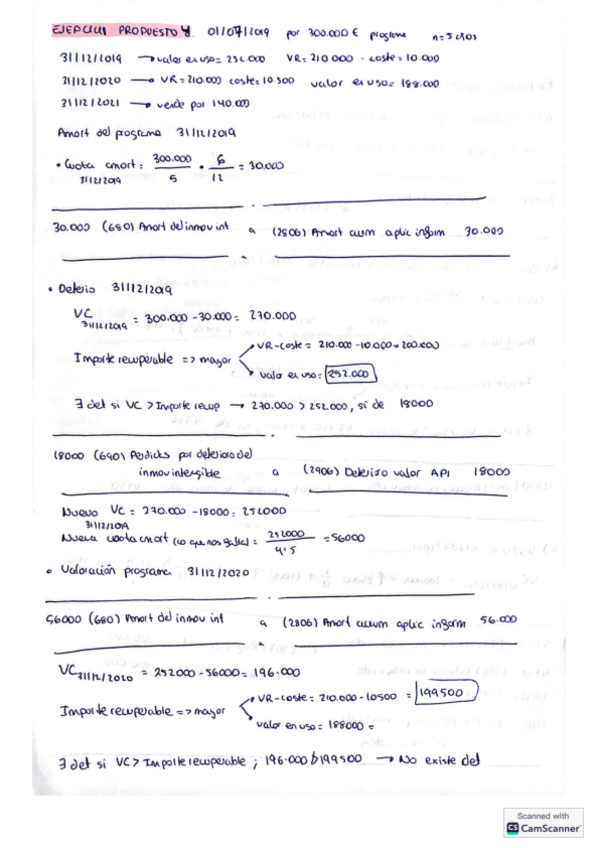 EJERCICIO PROPUESTO 4. 01/07/2019 por 300.000 € programa n=5 años
31/12/2019 → valor en uso = 252.000 VR = 210000 - coste = 10.000
31/12/2020 → VR = 210.000 coste = 10.500 valor en uso = 188.000
31/12/2021 → vende por 140.000
Amort del programa 31/12/2019
• Cuota amort = 300.000/5 · 6/12 = 30.000
31/12/2019
30.000 (680) Amort del inmov int a (2806) Amort acum aplic inform 30.000
• Deterio 31/12/2019
VC 31/12/2019 = 300.000 - 30.000 = 270.000
VR - coste = 210.000 - 10.000 = 200.000
Importe recuperable => mayor
valor en uso = 252.000
∃ det si VC > Importe recup → 270.000 > 252.000, si de 18000
18000 (690) Perdidas por deterioro del
inmov intangible a (2906) Deterioro valor API 18000
Nuevo VC = 270.000 - 18000 = 252000
31/12/2019
Nueva cuota amort (lo que nos falta) = 252000/4'5 = 56000
• Valoración programa 31/12/2020
56000 (680) Amort del inmov int a (2806) Amort acum aplic inform 56.000
VC 31/12/2020 = 252000 - 56000 = 196.000
VR - coste = 210.000 - 10500 = 199500
Importe recuperable => mayor
valor en uso = 188000 =
∃ det si VC > Importe recuperable ; 196.000 ≯ 199500 → No existe det
Scanned with
CS CamScanner